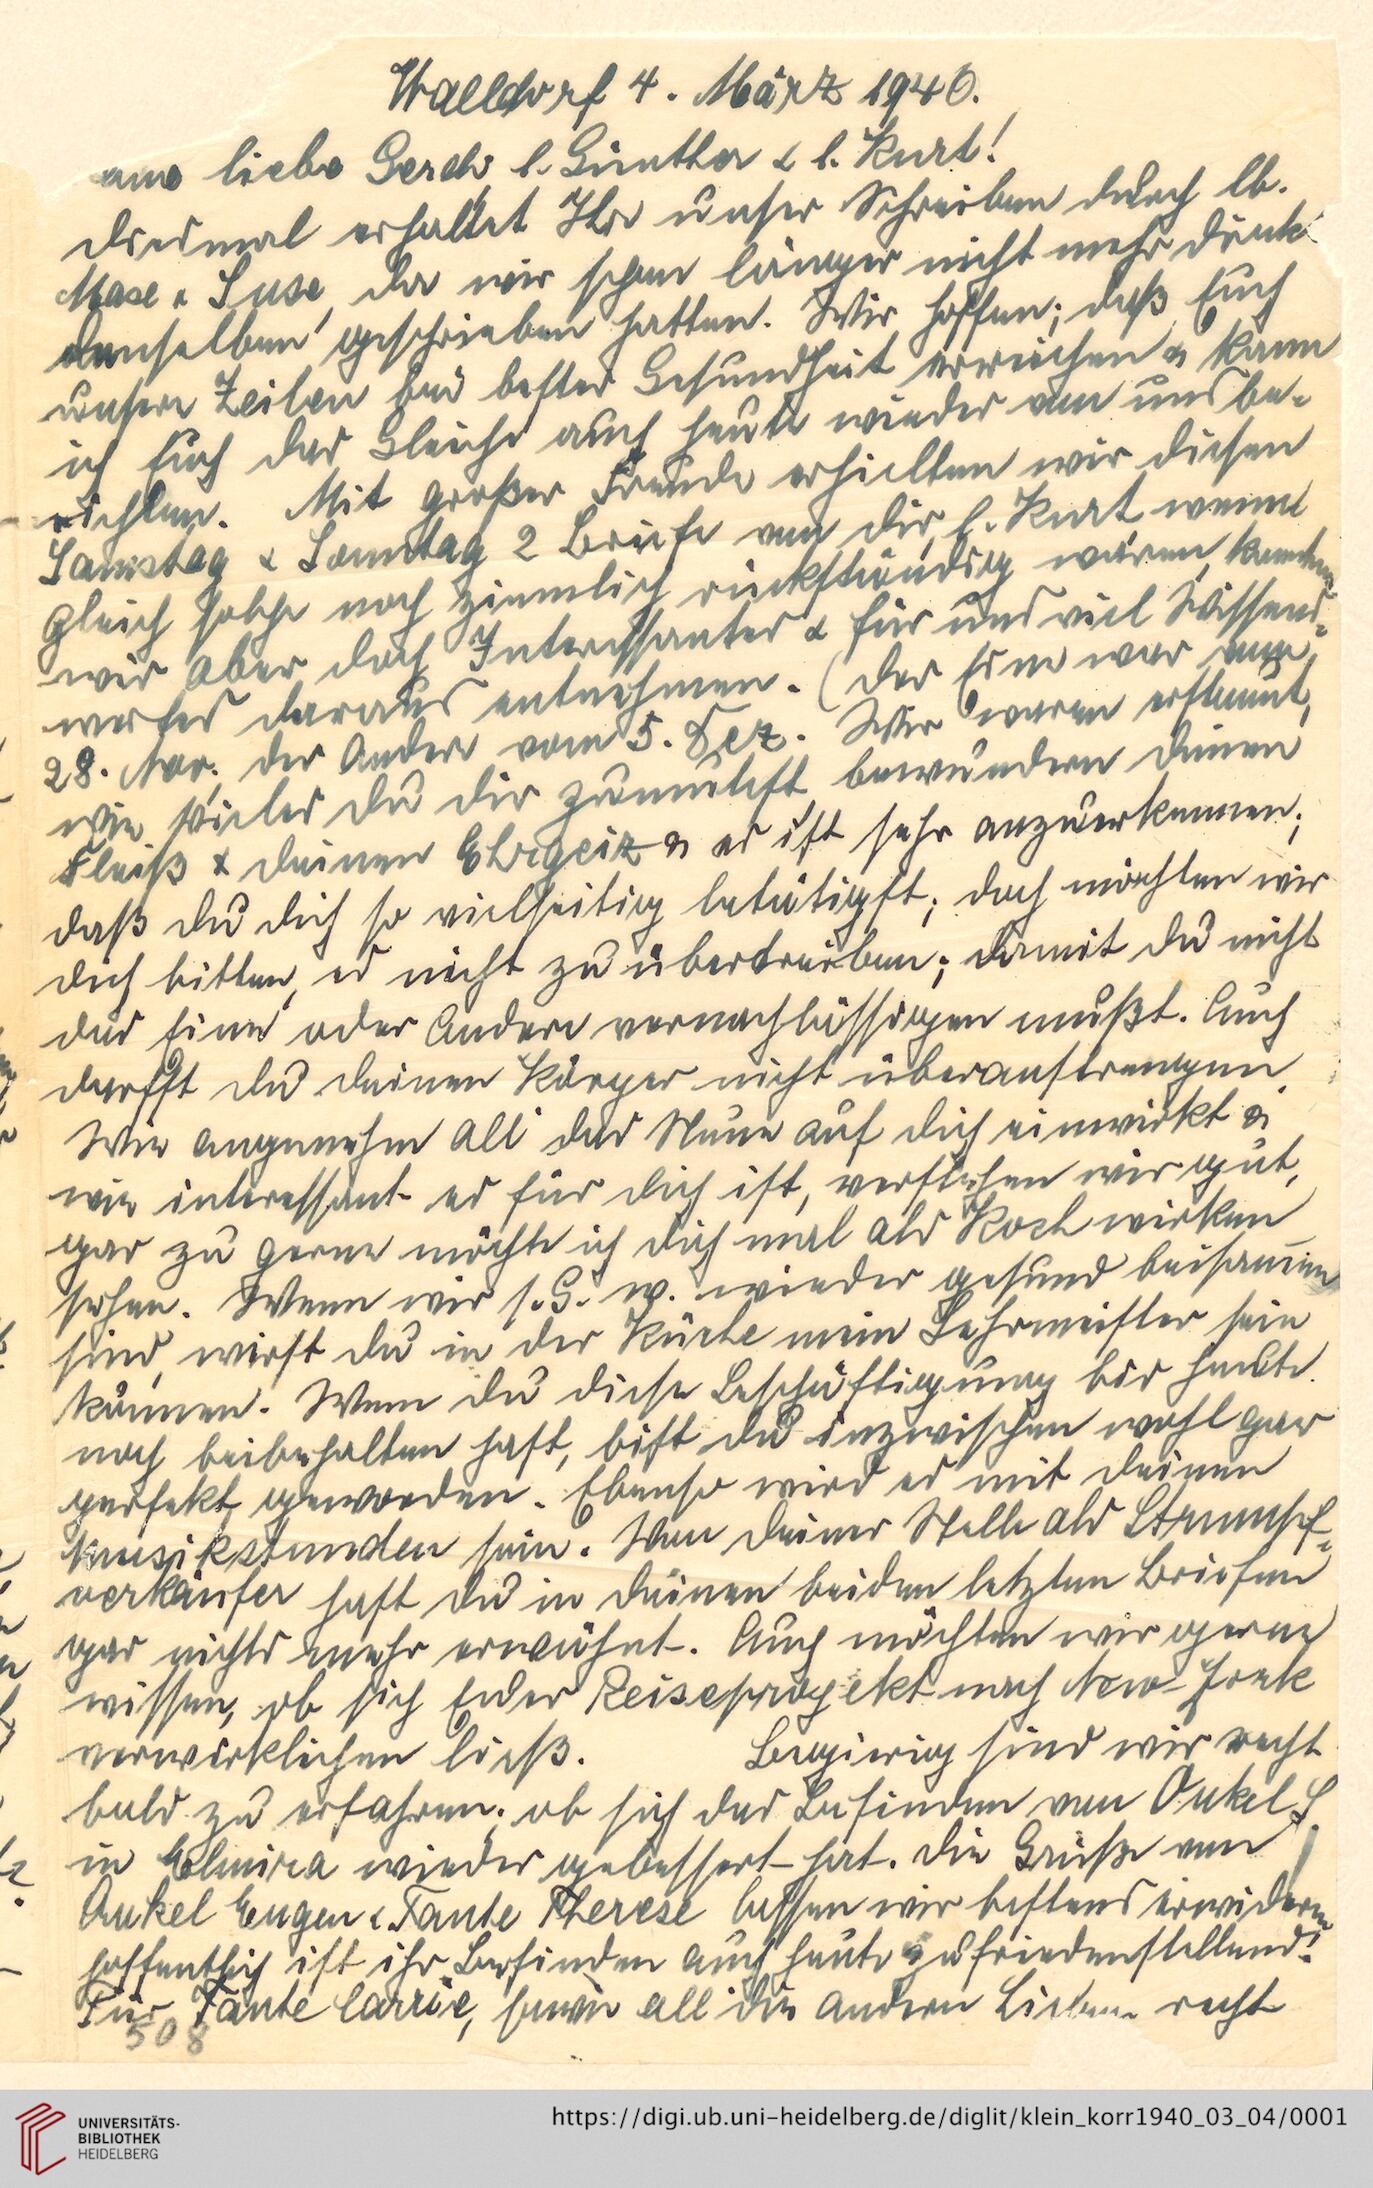 Walldorf 4. März 1940.
liebe Gerdi l. Günther & l. Kurt!
diesmal erhaltet Ihr unser Schreiben durch lb.
Mase & Suse, da wir schon länger nicht mehr durch
denselben geschrieben hatten. Wir hoffen, daß Euch
unsere Zeilen bei bester Gesundheit erreichen & kann
ich Euch das Gleiche auch heute wieder von uns be-
richten. Mit großer Freude erhielten wir diesen
Samstag & Sonntag 2 Briefe von dir, l. Kurt wenn
gleich solche noch ziemlich rückständig waren, konnten
wir aber doch Interessantes & für uns viel Wissens-
wertes daraus entnehmen. (der Eine war vom
28. Nov. der Andere vom 5. Dez. Wir waren erstaunt,
wie vieles du dir zumutest bewundern deinen
Fleiß & deinen Ehrgeiz & es ist sehr anzuerkennen,
daß du dich so vielseitig betätigst, doch möchten wir
dich bitten, es nicht zu übertreiben, damit du nicht
das Eine oder Andere vernachlässigen mußt. Auch
darfst du deinen Körper nicht überanstrengen.
Wie angenehm all das Neue auf dich einwirkt &
wie interessant es für dich ist, verstehen wir gut,
gar zu gerne möchte ich dich mal als Koch wirken
sehen. Wenn wir s. G. w. wieder gesund beisammen
sind, wirst du in der Küche mein Lehrmeister sein
können. Wenn du diese Beschäftigung bis heute
noch beibehalten hast, bist du inzwischen wohl gar
perfekt geworden. Ebenso wird es mit deinen
Musikstunden sein. Von deiner Stelle als Strumpf-
verkäufer hast du in deinen beiden letzten Briefen
gar nichts mehr erwähnt. Auch möchten wir gerne
wissen, ob sich Euer Reiseprojekt nach New-York
verwirklichen ließ. Begierig sind wir recht
bald zu erfahren, ob sich das Befinden von Onkel S
in Elmira wieder gebessert hat. Die Grüße von
Onkel Eugen & Tante Therese lassen wir bestens erwidern
hoffentlich ist ihr Befinden auch heute zufriedenstellend!
Für Tante Carrie, sowie all die andern Lieben recht
508
UNIVERSITÄTS-
BIBLIOTHEK
HEIDELBERG
https://digi.ub.uni-heidelberg.de/diglit/klein_korr1940_03_04/0001